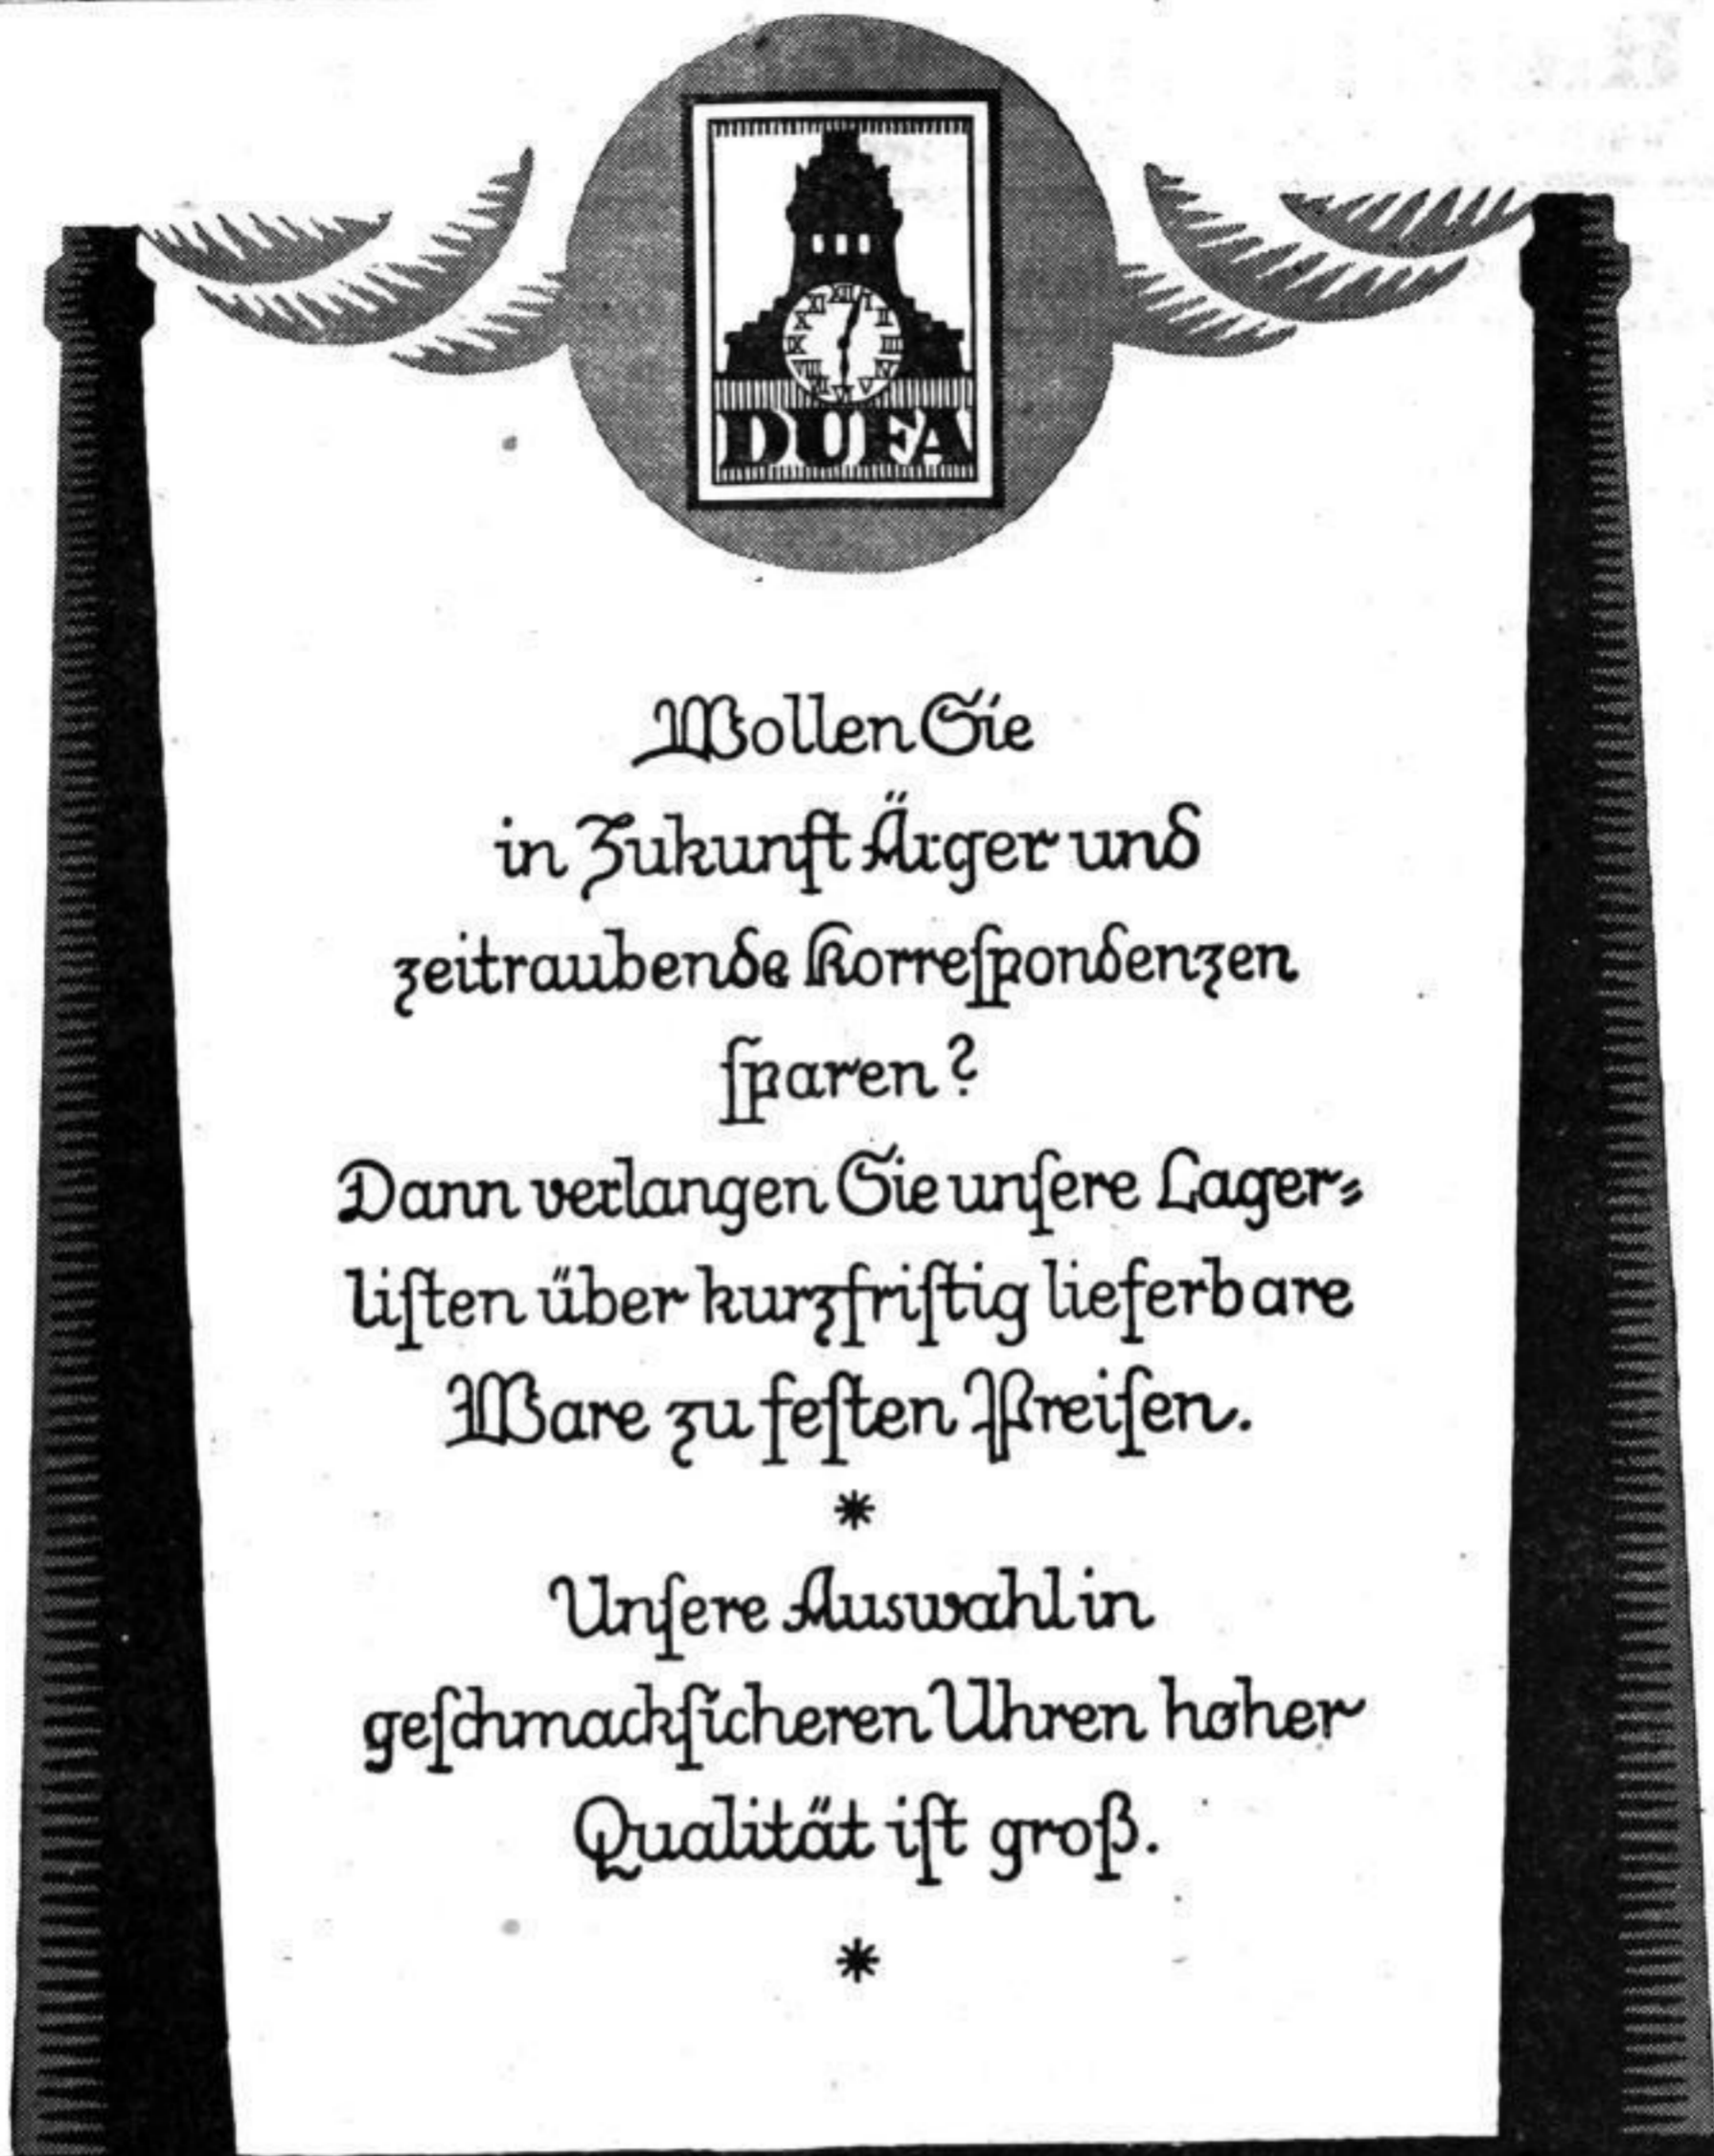 XII I II III IV V VI VII VIII IX X XI
DUFA
Wollen Sie
in Zukunft Ärger und
zeitraubende Korreſpondenzen
ſparen?
Dann verlangen Sie unſere Lager⸗
liſten über kurzfriſtig lieferbare
Ware zu feſten Preiſen.
*
Unſere Auswahl in
geſchmackſicheren Uhren hoher
Qualität iſt groß.
*